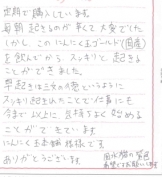 定期で購入しています。
毎朝起きるのが辛くて大変でした
しかし、このにんにく玉ゴールド(国産)
を飲んでから スッキリと 起きる
ことができました。
早起きは三文の徳というように
スッキリ起きれたことで仕事にも
今まで以上に 気持ちよく 始める
ことができています。
にんにく玉本舗 様様です
ありがとうございます。